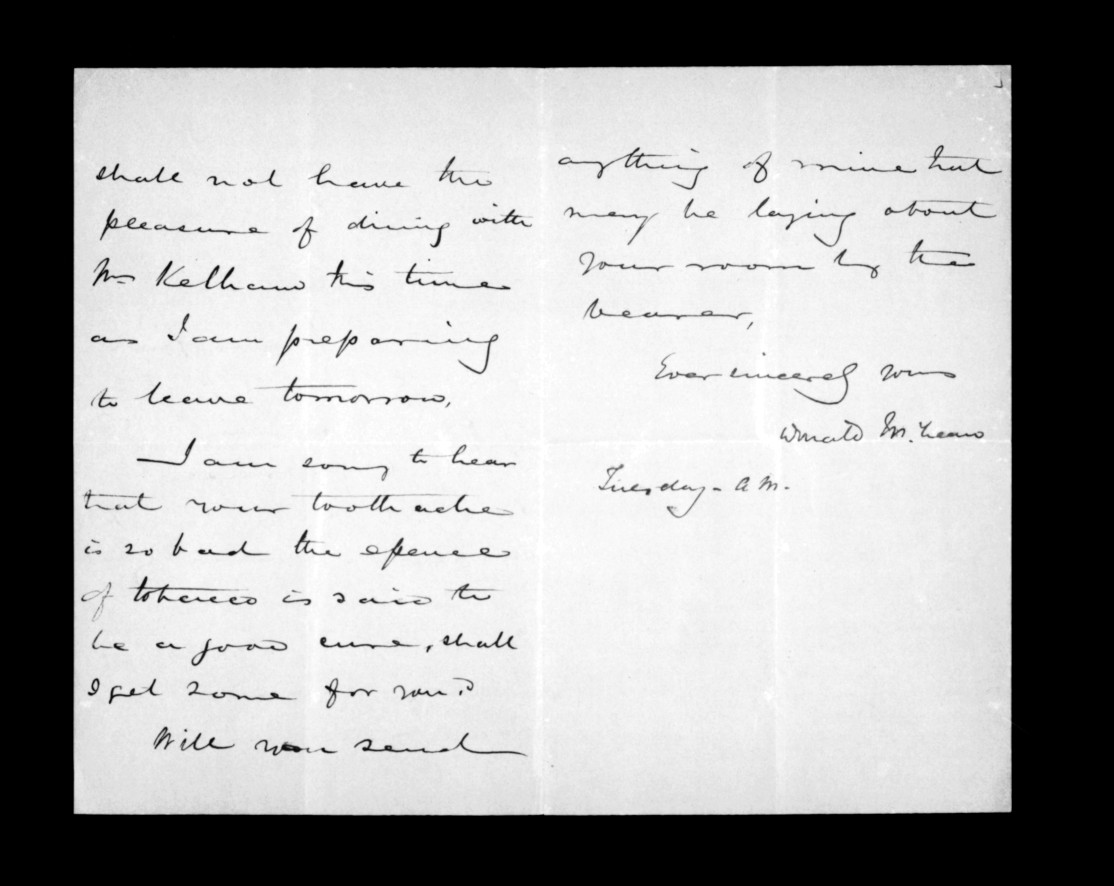 shall not have the
pleasure of dining with
Mr Kelham this time
as I am preparing
to leave tomorrow,
I am sorry to hear
that your toothache
is so bad the
of tobacco is said to
be a good cure, shall
I get some for you?
Will you send
anything of mine that
may be laying about
your room by the
bearer,
Ever sincerely yours
Donald McLean
Tuesday - A M.